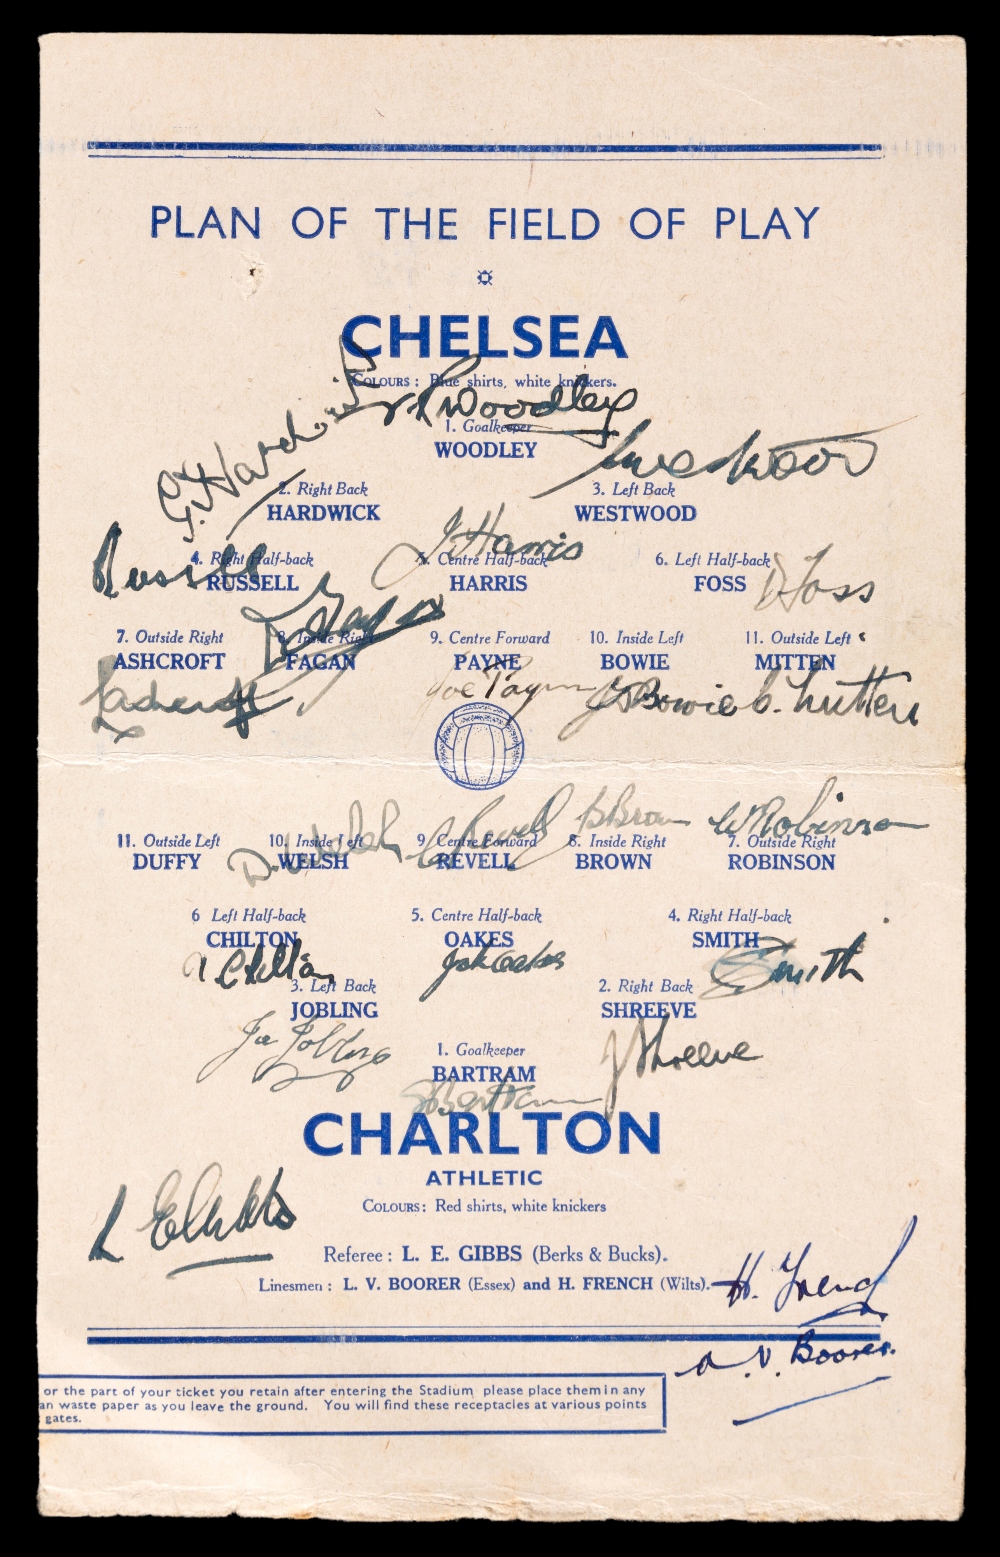 PLAN OF THE FIELD OF PLAY
CHELSEA
COLOURS : Blue shirts, white knickers.
G. Hardwick
V R Woodley
1. Goalkeeper
WOODLEY
Westwood
2. Right Back
3. Left Back
HARDWICK
WESTWOOD
J. Harris
Russell
4. Right Half-back
5. Centre Half-back
6. Left Half-back
RUSSELL
HARRIS
FOSS
D Foss
Fagan
7. Outside Right
8. Inside Right
9. Centre Forward
10. Inside Left
11. Outside Left
ASHCROFT
FAGAN
PAYNE
BOWIE
MITTEN
Ashcroft
Joe Payne
J Bowie
C. Mitten
D. Welsh
C Revell
B Brown
W Robinson
11. Outside Left
10. Inside Left
9 Centre Forward
8. Inside Right
7. Outside Right
DUFFY
WELSH
REVELL
BROWN
ROBINSON
6 Left Half-back
5. Centre Half-back
4. Right Half-back
CHILTON
OAKES
SMITH
Chilton
Jack Oakes
Smith
3. Left Back
2. Right Back
JOBLING
SHREEVE
Joe Jobling
J Shreeve
1. Goalkeeper
BARTRAM
S Bartram
CHARLTON
ATHLETIC
COLOURS : Red shirts, white knickers
L E Gibbs
Referee : L. E. GIBBS (Berks & Bucks).
Linesmen : L. V. BOORER (Essex) and H. FRENCH (Wilts).
H. French
V. Boorer.
or the part of your ticket you retain after entering the Stadium please place them in any
an waste paper as you leave the ground. You will find these receptacles at various points
gates.